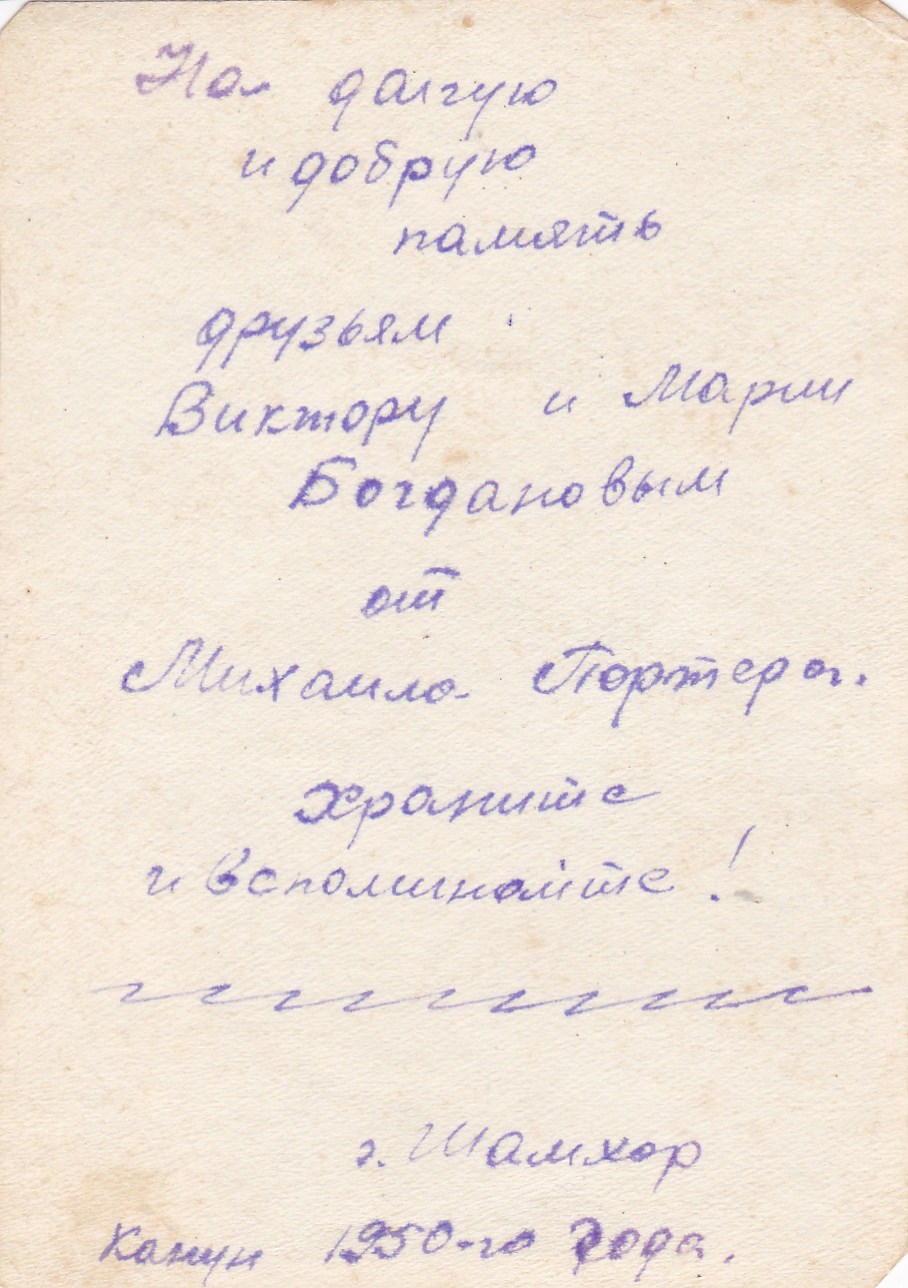 На долгую
и добрую
память
друзьям
Виктору и Марии
Богдановым
от
Михаила Портера.
храните
и вспоминайте!
г. Шамхор
Канун 1950-го года.